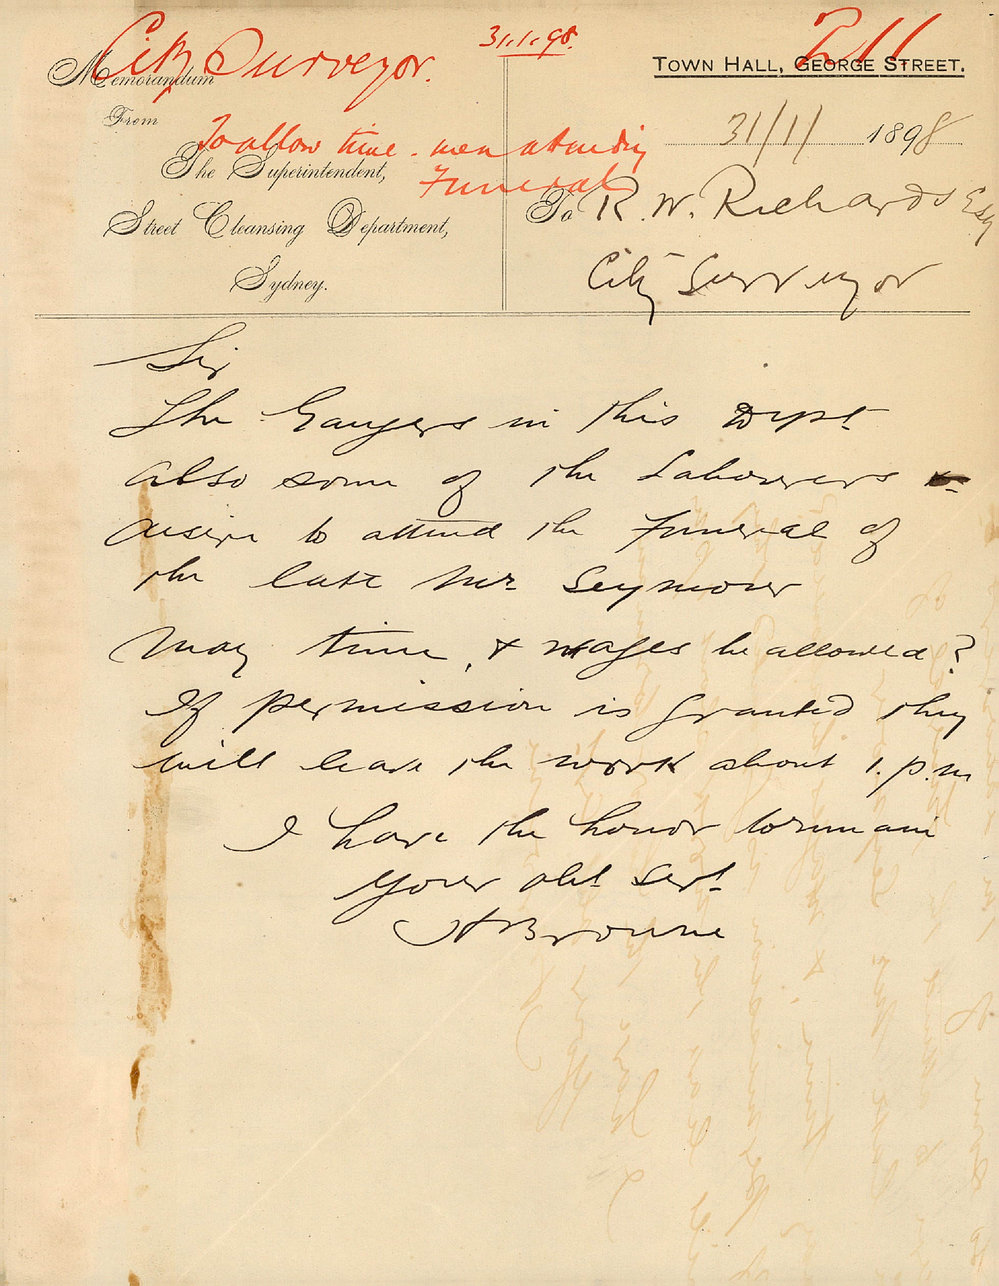 City Surveyor.
31.1.98.
211
Memorandum
From
TOWN HALL, GEORGE STREET.
To allow time - men attending
Funeral
31/1/ 1898
The Superintendent,
Street Cleansing Department,
Sydney.
To R. W. Richards Esq
City Surveyor
Sir
The Gaugers in this Dept
also some of the Labourers
desire to attend the Funeral of
the late Mr Seymour
May time, & wages be allowed?
If permission is granted they
will leave the work about 1.p.m
I have the honor to remain
Your obt Servt
A Browne